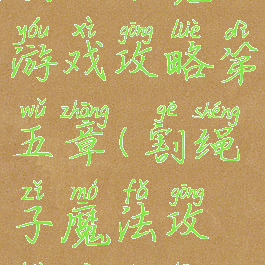 yóu xì gōng lüè dì
游戏攻略第
wǔ zhāng gē shéng
五章(割绳
zǐ mó fǎ gōng
子魔法攻